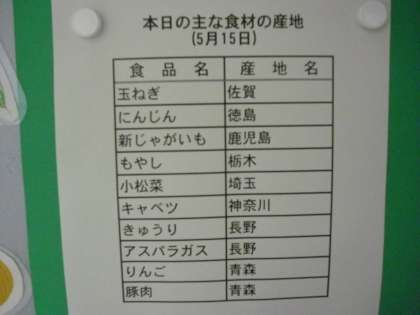 本日の主な食材の産地
(5月15日)
食品名 産地名
玉ねぎ 佐賀
にんじん 徳島
新じゃがいも 鹿児島
もやし 栃木
小松菜 埼玉
キャベツ 神奈川
きゅうり 長野
アスパラガス 長野
りんご 青森
豚肉 青森